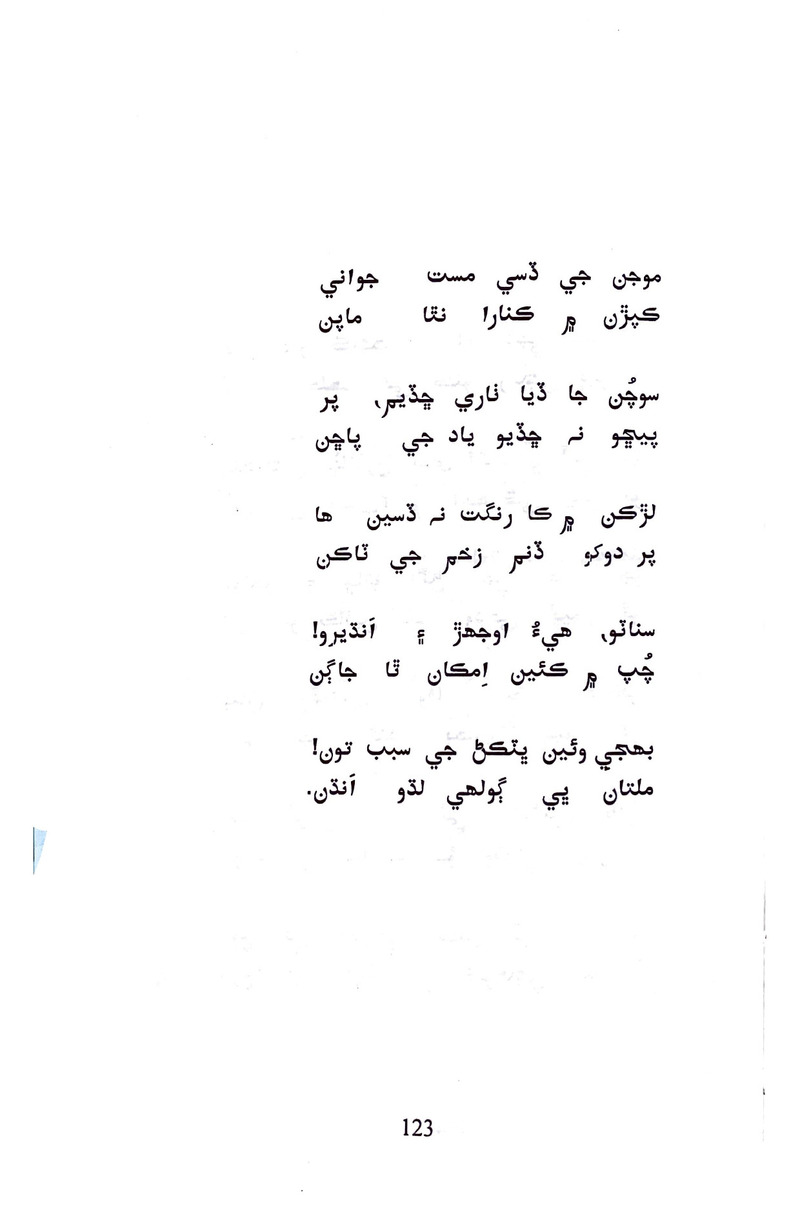 موجن جي ڏسي مست جواني
ڪپڙن ۾ ڪنارا نٿا ماپن
سوچُن جا ڏيا ٺاري ڇڏيم، پر
پيڇو نہ ڇڏيو ياد جي پاڇن
لڙڪن ۾ ڪا رنگت نہ ڏسين ها
پر دوکو ڏنم زخم جي ٽاڪن
سناٽو، هيءُ اوجهڙ ۽ اَنڌيرو!
چُپ ۾ ڪئين اِمڪان ٿا جاڳن
بهجي وئين ڀٽڪڻ جي سبب تون!
ملتان پي ڳولهي لڌو اَنڌن.
123